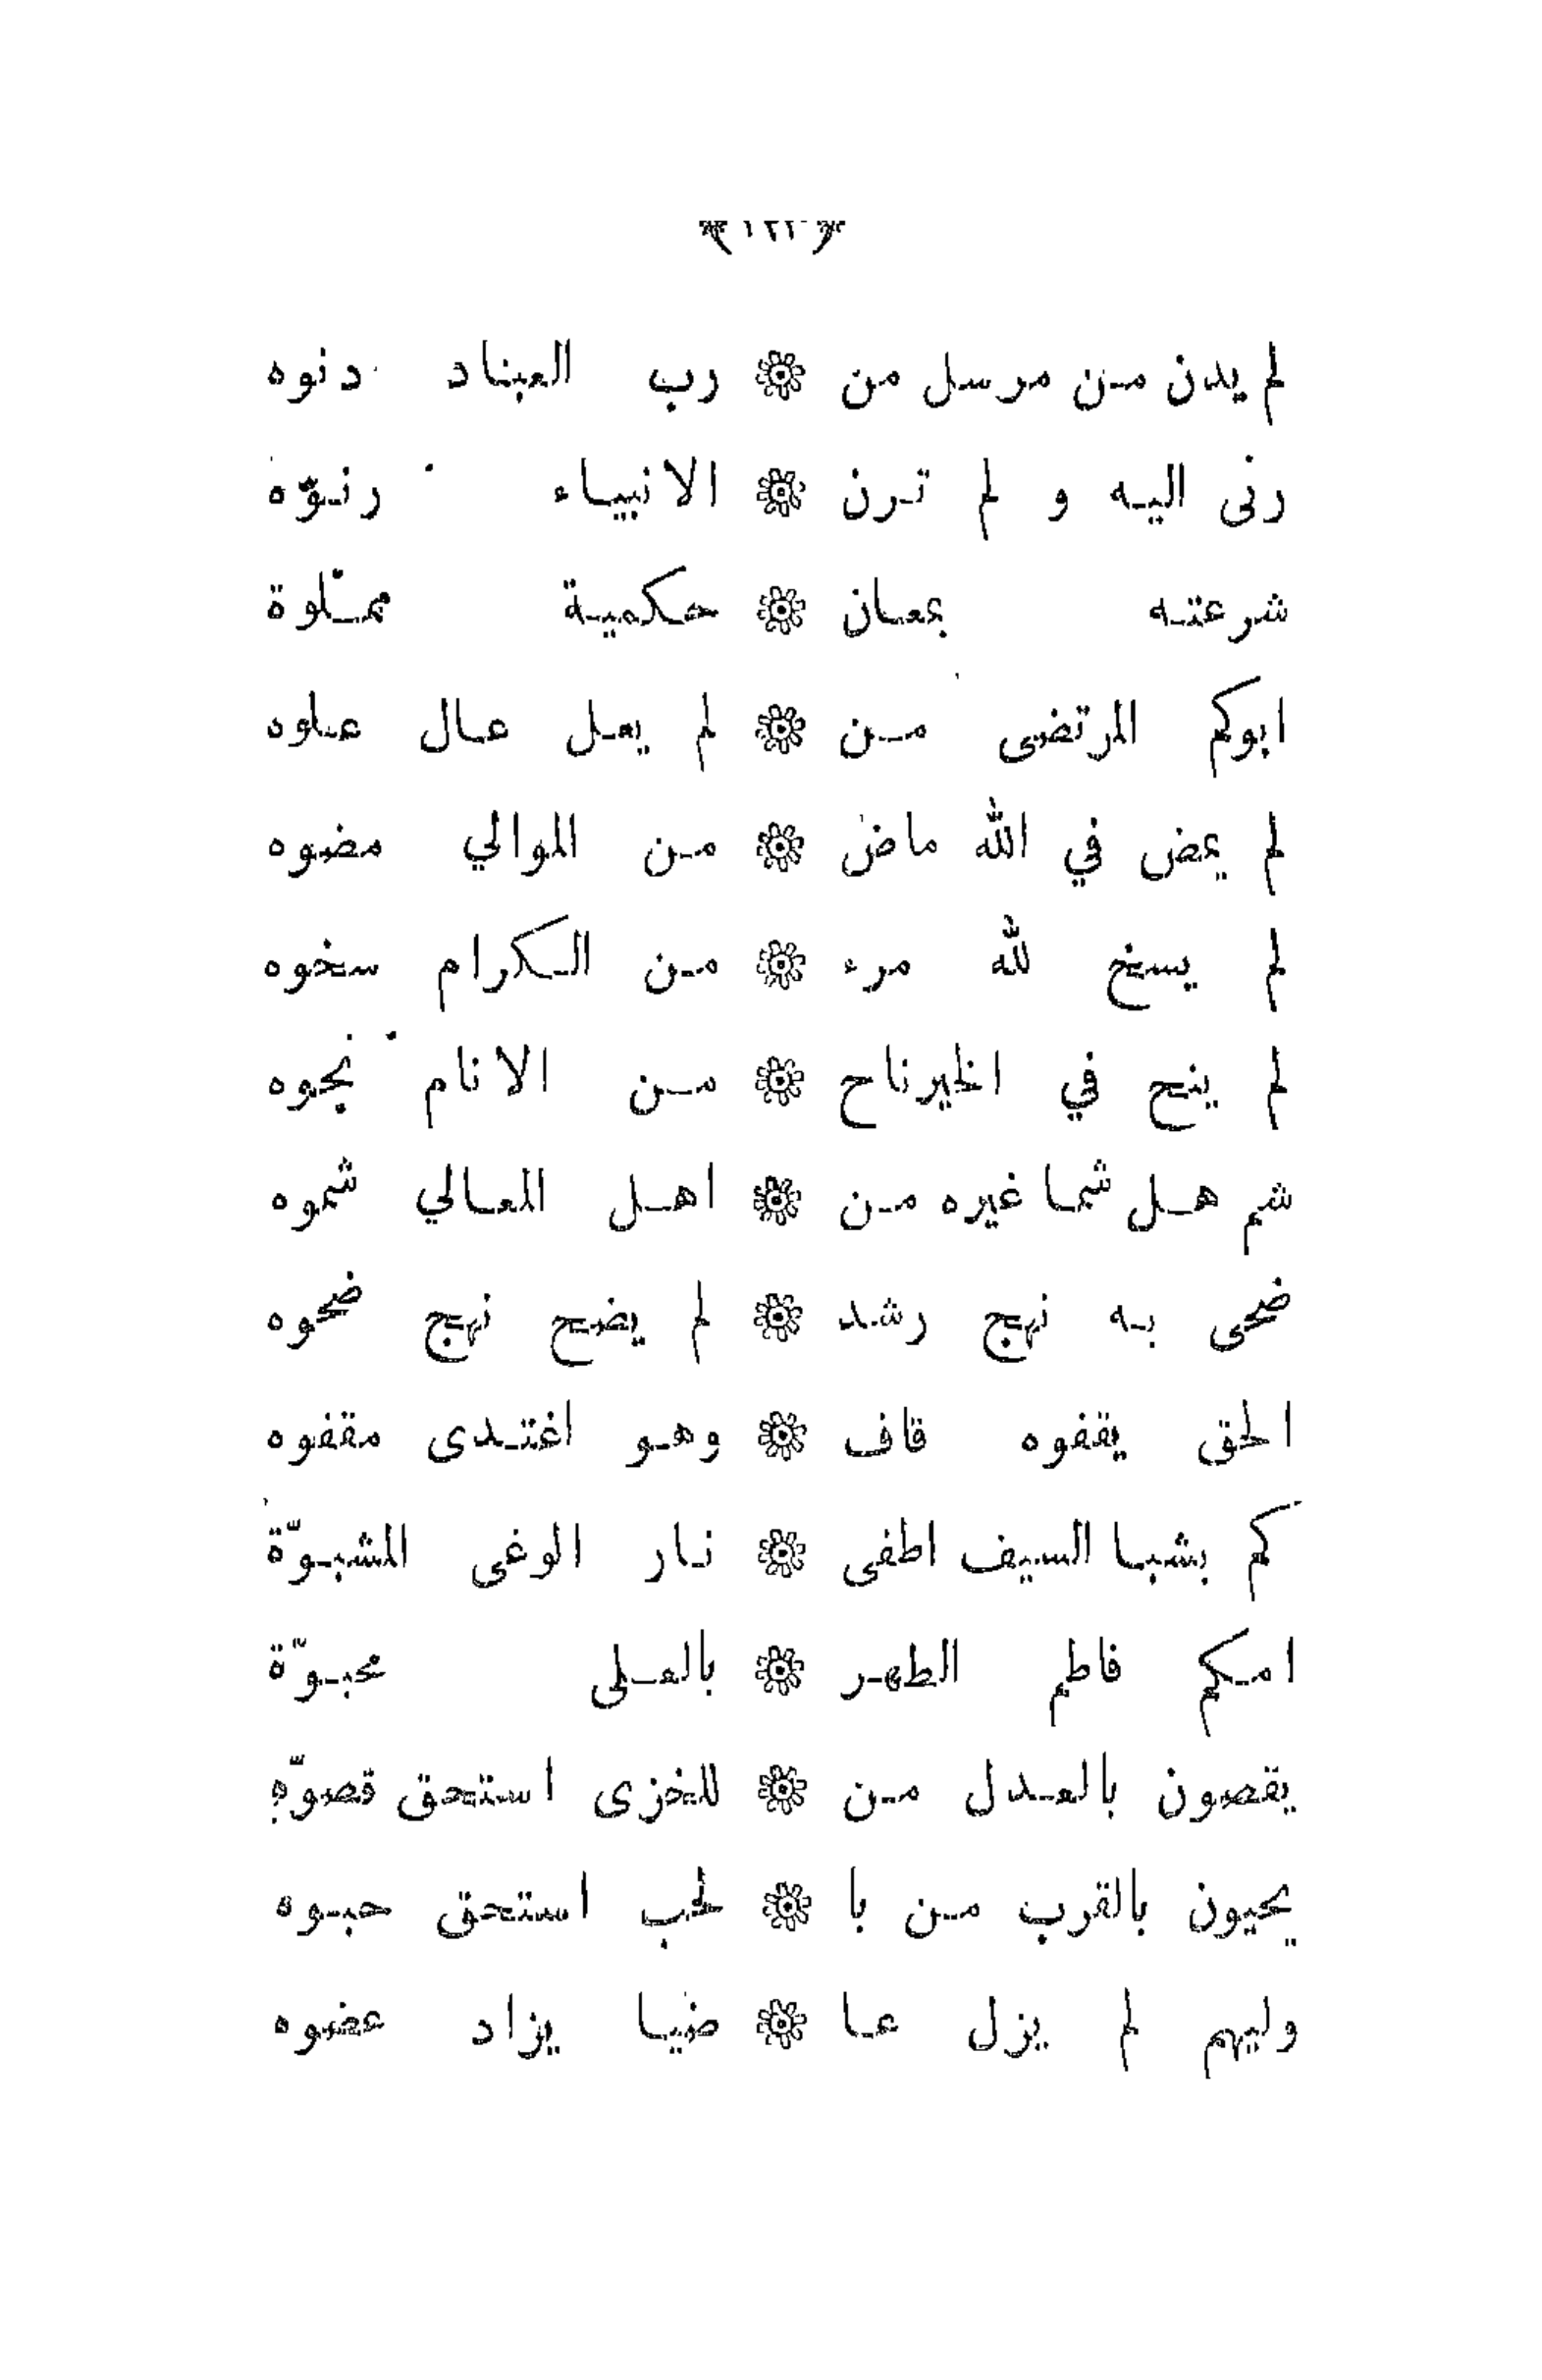 لم يدن من مرسل من ❁ رب العباد دنوه
رنى اليه و لم ترن ❁ الانبياء رنوّه
شرعته بمعان ❁ حكمية ممـلوة
ابوكم المرتضى من ❁ لم يعل عال علوه
لم يمض في الله ماض ❁ من الموالي مضوه
لم يسخ لله مرء ❁ من الكرام سخوه
لم ينح في الخير ناح ❁ من الانام نجوه
شم هل شما غيره من ❁ اهل المعالي شموه
ضحى به نهج رشد ❁ لم يضح نهج ضحوه
الحق يقفوه قاف ❁ وهو اغتدى مقفوه
كم بشبا السيف اطفى ❁ نار الوغى المشبوّة
امكم فاطم الطهر ❁ بالعلى محبوّة
يقصون بالعدل من ❁ للخزى استحق قصوّه
يحيون بالقرب من با ❁ لحب استحق حبوه
وليهم لم يزل عا ❁ ضيا يزاد عضوه